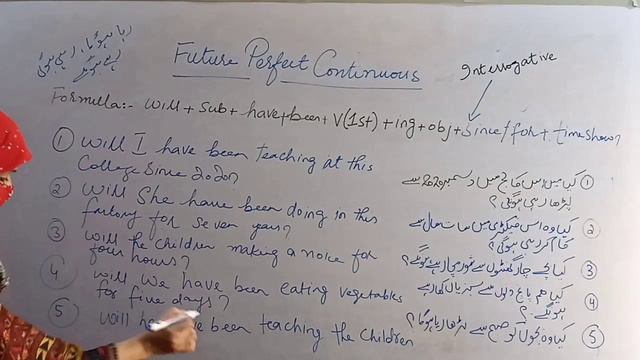 رہا ہوگا، رہی ہوگی
رہے ہونگے
Future Perfect Continuous
Interrogative
Formulla:- will + sub + have + been + V(1st) + ing + obj + since/for + time show?
① Will I have been teaching at this
College Since 2020?
② Will She have been doing in this
factory for Seven years?
③ will the children making a noice for
four hours?
④ will we have been eating vegetables
for five days?
⑤ will have been teaching the Children
① کیا میں اس کالج میں دسمبر 2020 سے
پڑھا رہی ہونگی؟
② کیا وہ اس فیکٹری میں سات سال سے
کام کر رہی ہوگی؟
③ کیا بچے چار گھنٹوں سے شور مچا رہے ہونگے؟
④ کیا ہم پانچ دنوں سے سبزیاں کھا رہے
ہونگے؟
⑤ کیا وہ بچوں کو صبح سے پڑھا رہا ہوگا؟